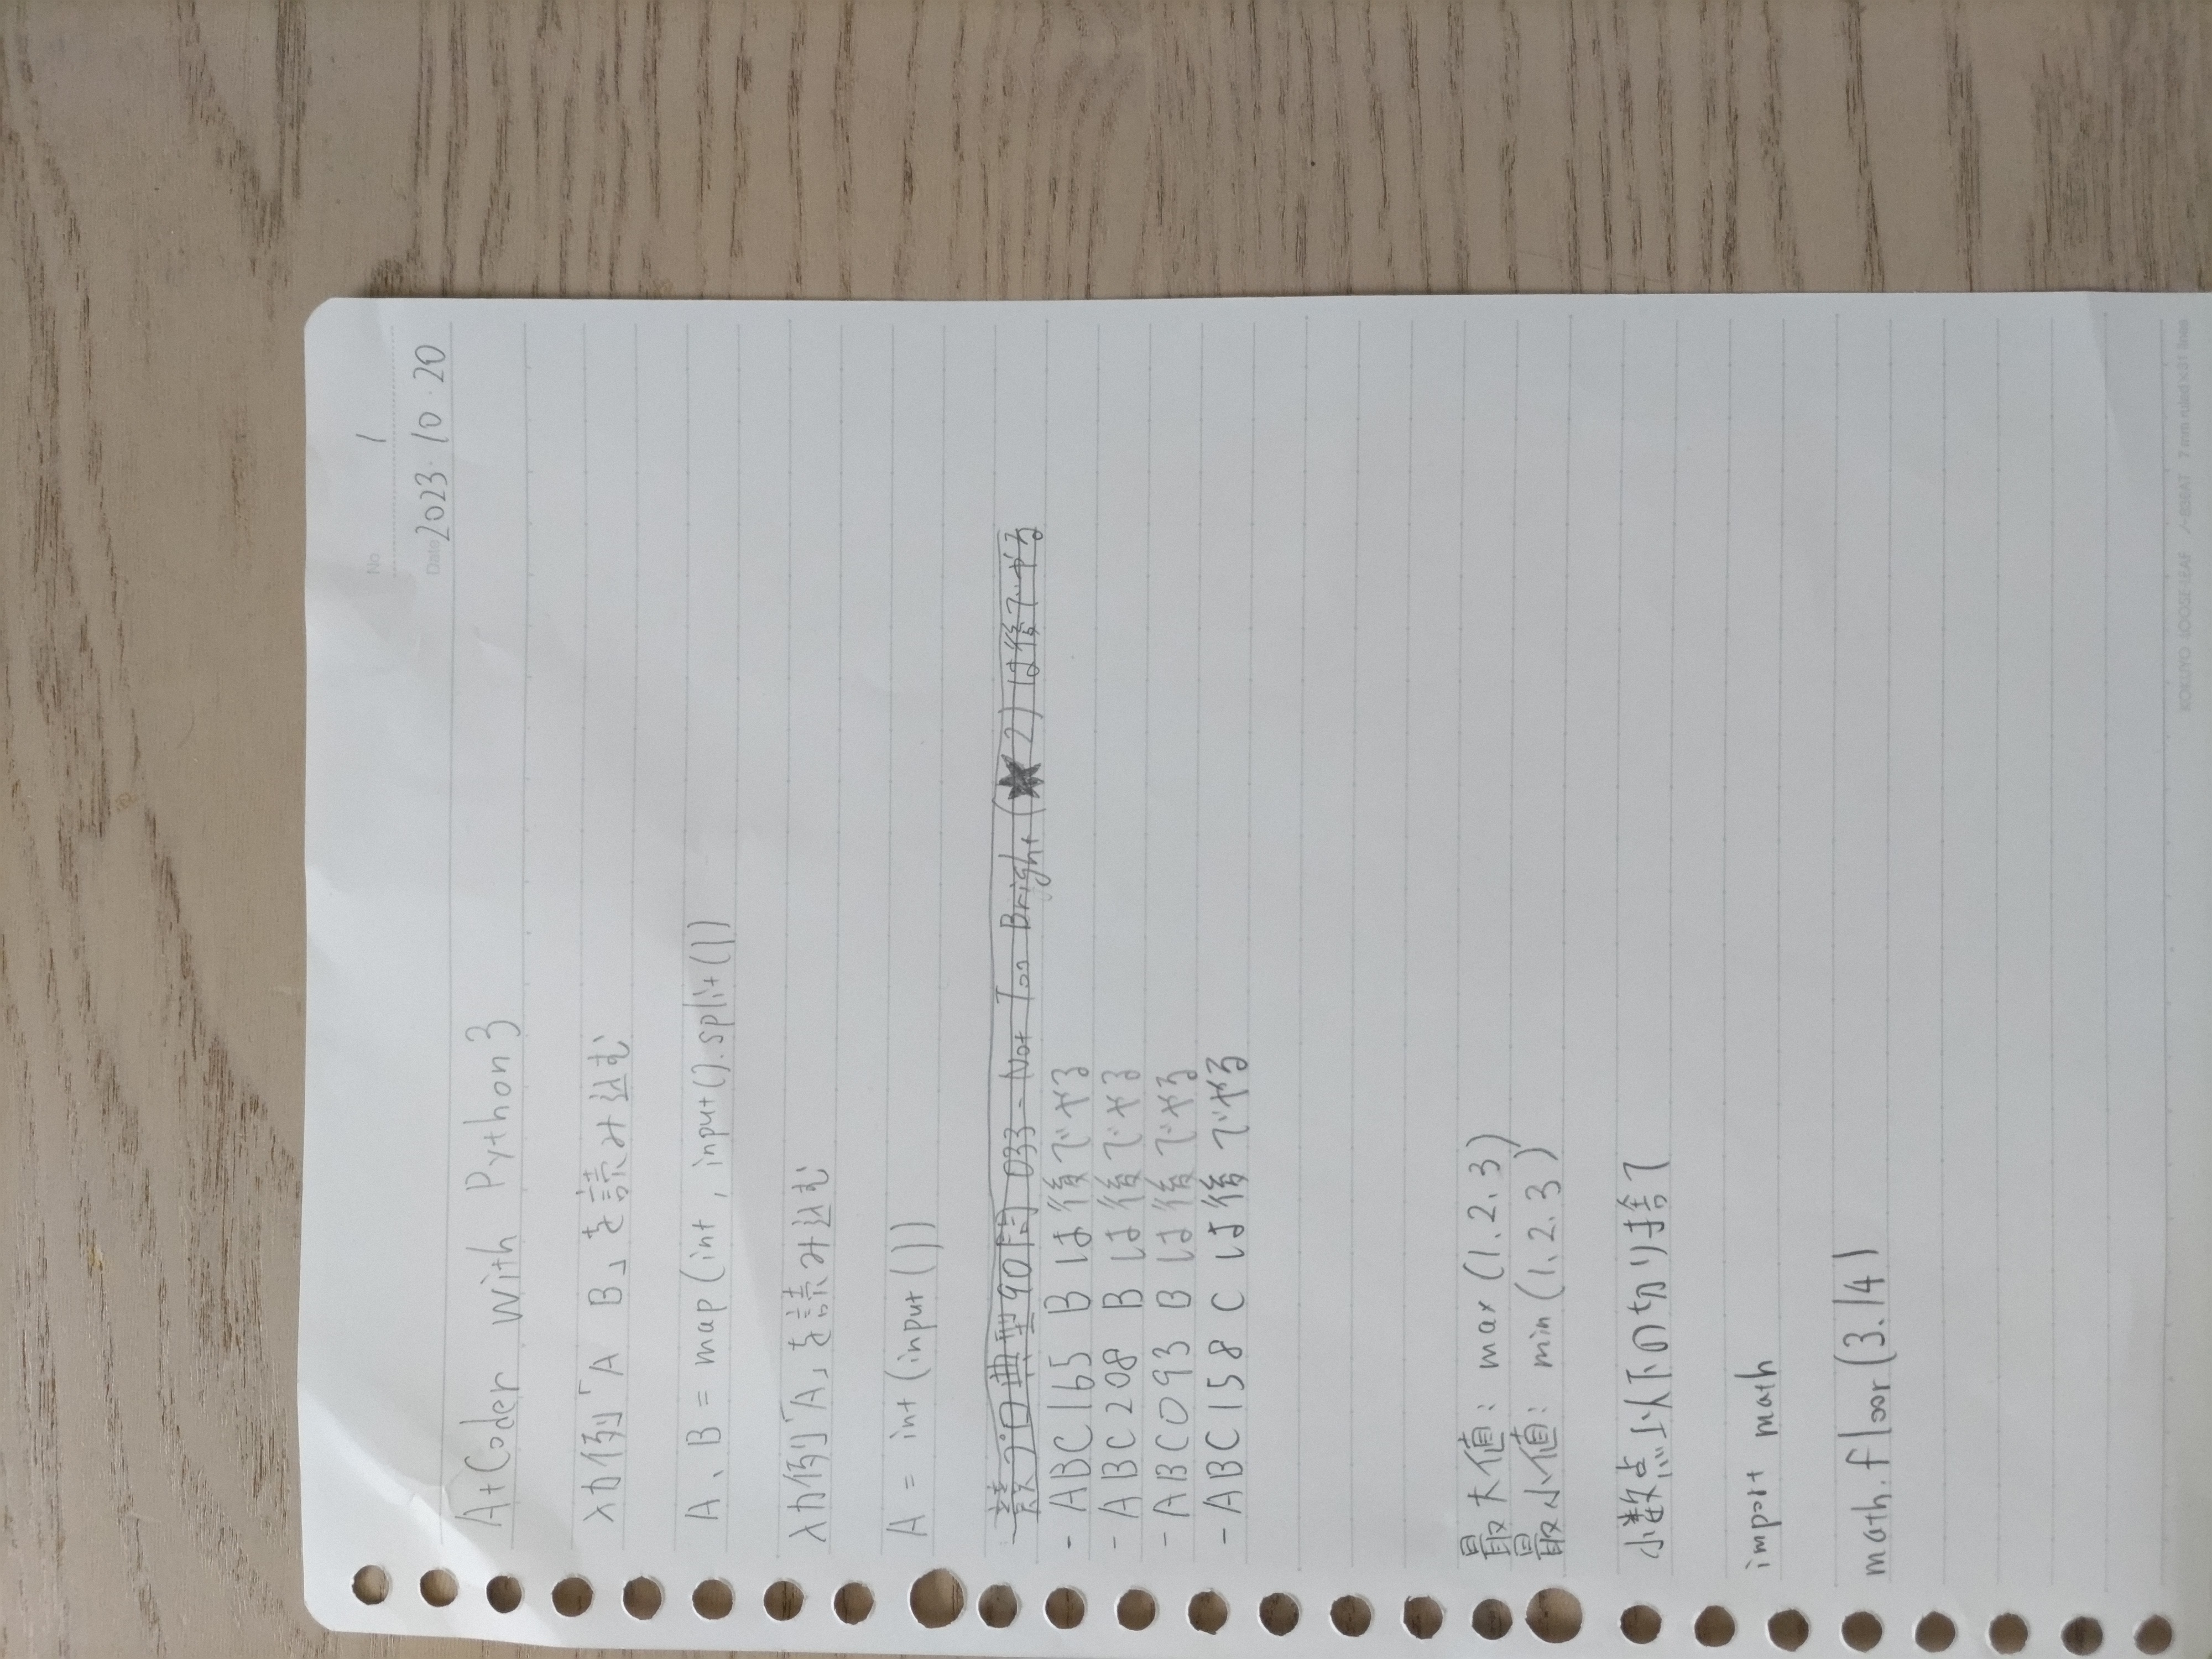 No. 1
Date 2023・10・20
AtCoder with Python3
入力例「A B」を読み込む
A、B = map(int, input().split())
入力例「A」を読み込む
A = int(input())
競プロ典型90問 033 - Not Too Bright (★2) は後でやる
- ABC165 B は後でやる
- ABC208 B は後でやる
- ABC093 B は後でやる
- ABC158 C は後でやる
最大値: max(1、2、3)
最小値: min(1、2、3)
小数点以下の切り捨て
import math
math.floor(3.14)
KOKUYO LOOSE-LEAF ノ-836AT 7 mm ruled×31 lines